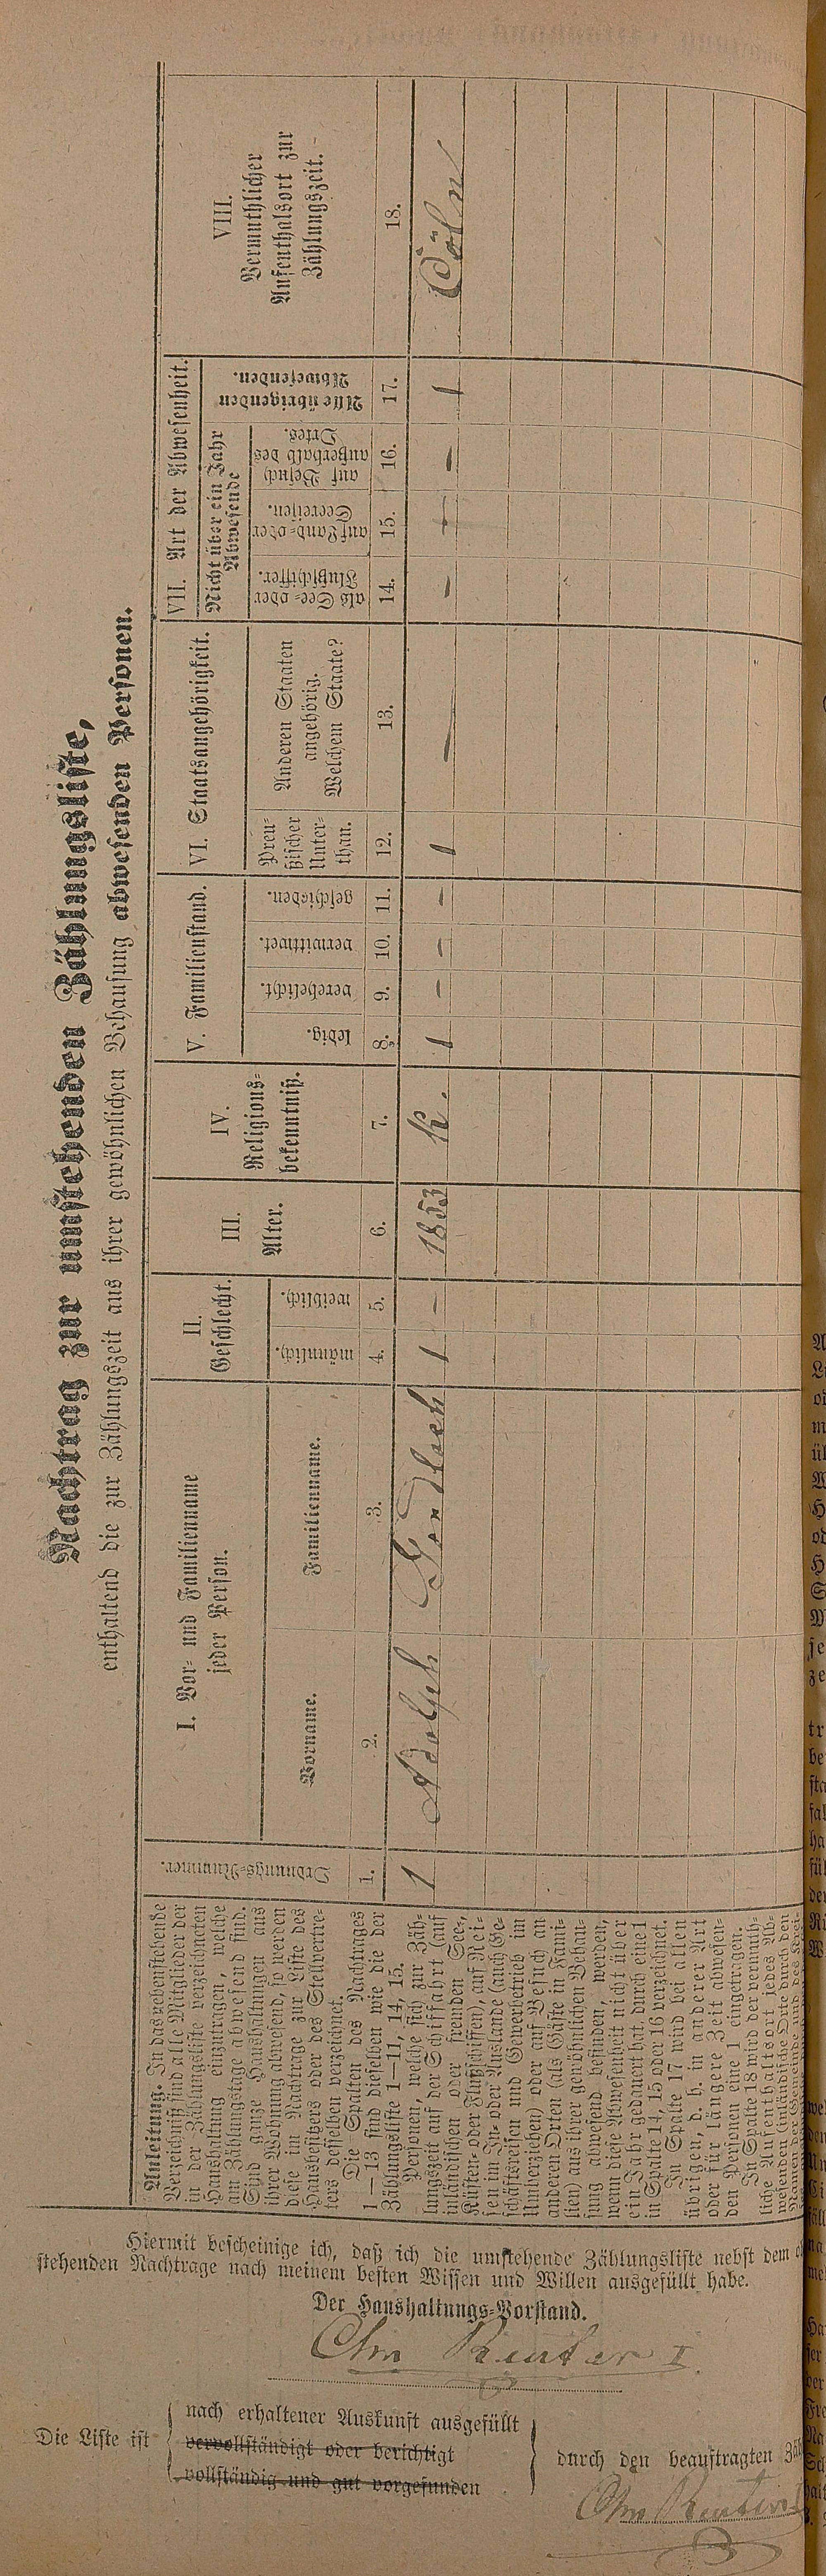 Nachtrag zur umstehenden Zählungsliste,
enthaltend die zur Zählungszeit aus ihrer gewöhnlichen Behausung abwesenden Personen.
Anleitung. In das nebenstehende
Verzeichniß sind alle Mitglieder der
in der Zählungsliste verzeichneten
Haushaltung einzutragen, welche
am Zählungstage abwesend sind.
Sind ganze Haushaltungen aus
ihrer Wohnung abwesend, so werden
diese im Nachtrage zur Liste des
Hausbesitzers oder des Stellvertre-
ters desselben verzeichnet.
Die Spalten des Nachtrages
1—13 sind dieselben wie die der
Zählungsliste 1—11, 14, 15.
Personen, welche sich zur Zäh-
lungszeit auf der Schifffahrt (auf
inländischen oder fremden See-,
Küsten- oder Flußschiffen), auf Rei-
sen im In- oder Auslande (auch Ge-
schäftsreisen und Gewerbetrieb im
Umherziehen) oder auf Besuch an
anderen Orten (als Gäste in Fami-
lien) aus ihrer gewöhnlichen Behau-
sung abwesend befinden, werden,
wenn diese Abwesenheit nicht über
ein Jahr gedauert hat, durch eine 1
in Spalte 14, 15 oder 16 verzeichnet.
In Spalte 17 wird bei allen
übrigen, d. h. in anderer Art
oder für längere Zeit abwesen-
den Personen eine 1 eingetragen.
In Spalte 18 wird der vermuth-
liche Aufenthaltsort jedes Ab-
wesenden (inländische Orte durch den
Namen der Gemeinde und des Krei-
Ordnungs-Nummer.
I. Vor- und Familienname
jeder Person.
Vorname.
Familienname.
II.
Geschlecht.
männlich.
weiblich.
III.
Alter.
IV.
Religions-
bekenntniß.
V. Familienstand.
ledig.
verehelicht.
verwittwet.
geschieden.
VI. Staatsangehörigkeit.
Preu-
ßischer
Unter-
than.
Anderen Staaten
angehörig.
Welchem Staate?
VII. Art der Abwesenheit.
Nicht über ein Jahr
Abwesende
als See- oder
Flußschiffer.
auf Land- oder
Seereisen.
auf Besuch
außerhalb des
Ortes.
Alle übrigen
Abwesenden.
VIII.
Vermuthlicher
Aufenthaltsort zur
Zählungszeit.
1. 2. 3. 4. 5. 6. 7. 8. 9. 10. 11. 12. 13. 14. 15. 16. 17. 18.
1 Adolph 1 – 1853 K. 1 – – – 1 – – – – 1 Cöln
Hiermit bescheinige ich, daß ich die umstehende Zählungsliste nebst dem
stehenden Nachtrage nach meinem besten Wissen und Willen ausgefüllt habe.
Der Haushaltungs-Vorstand.
Chr Reuter I
Die Liste ist
nach erhaltener Auskunft ausgefüllt
vervollständigt oder berichtigt
vollständig und gut vorgefunden
durch den beauftragten
Chr Reuter